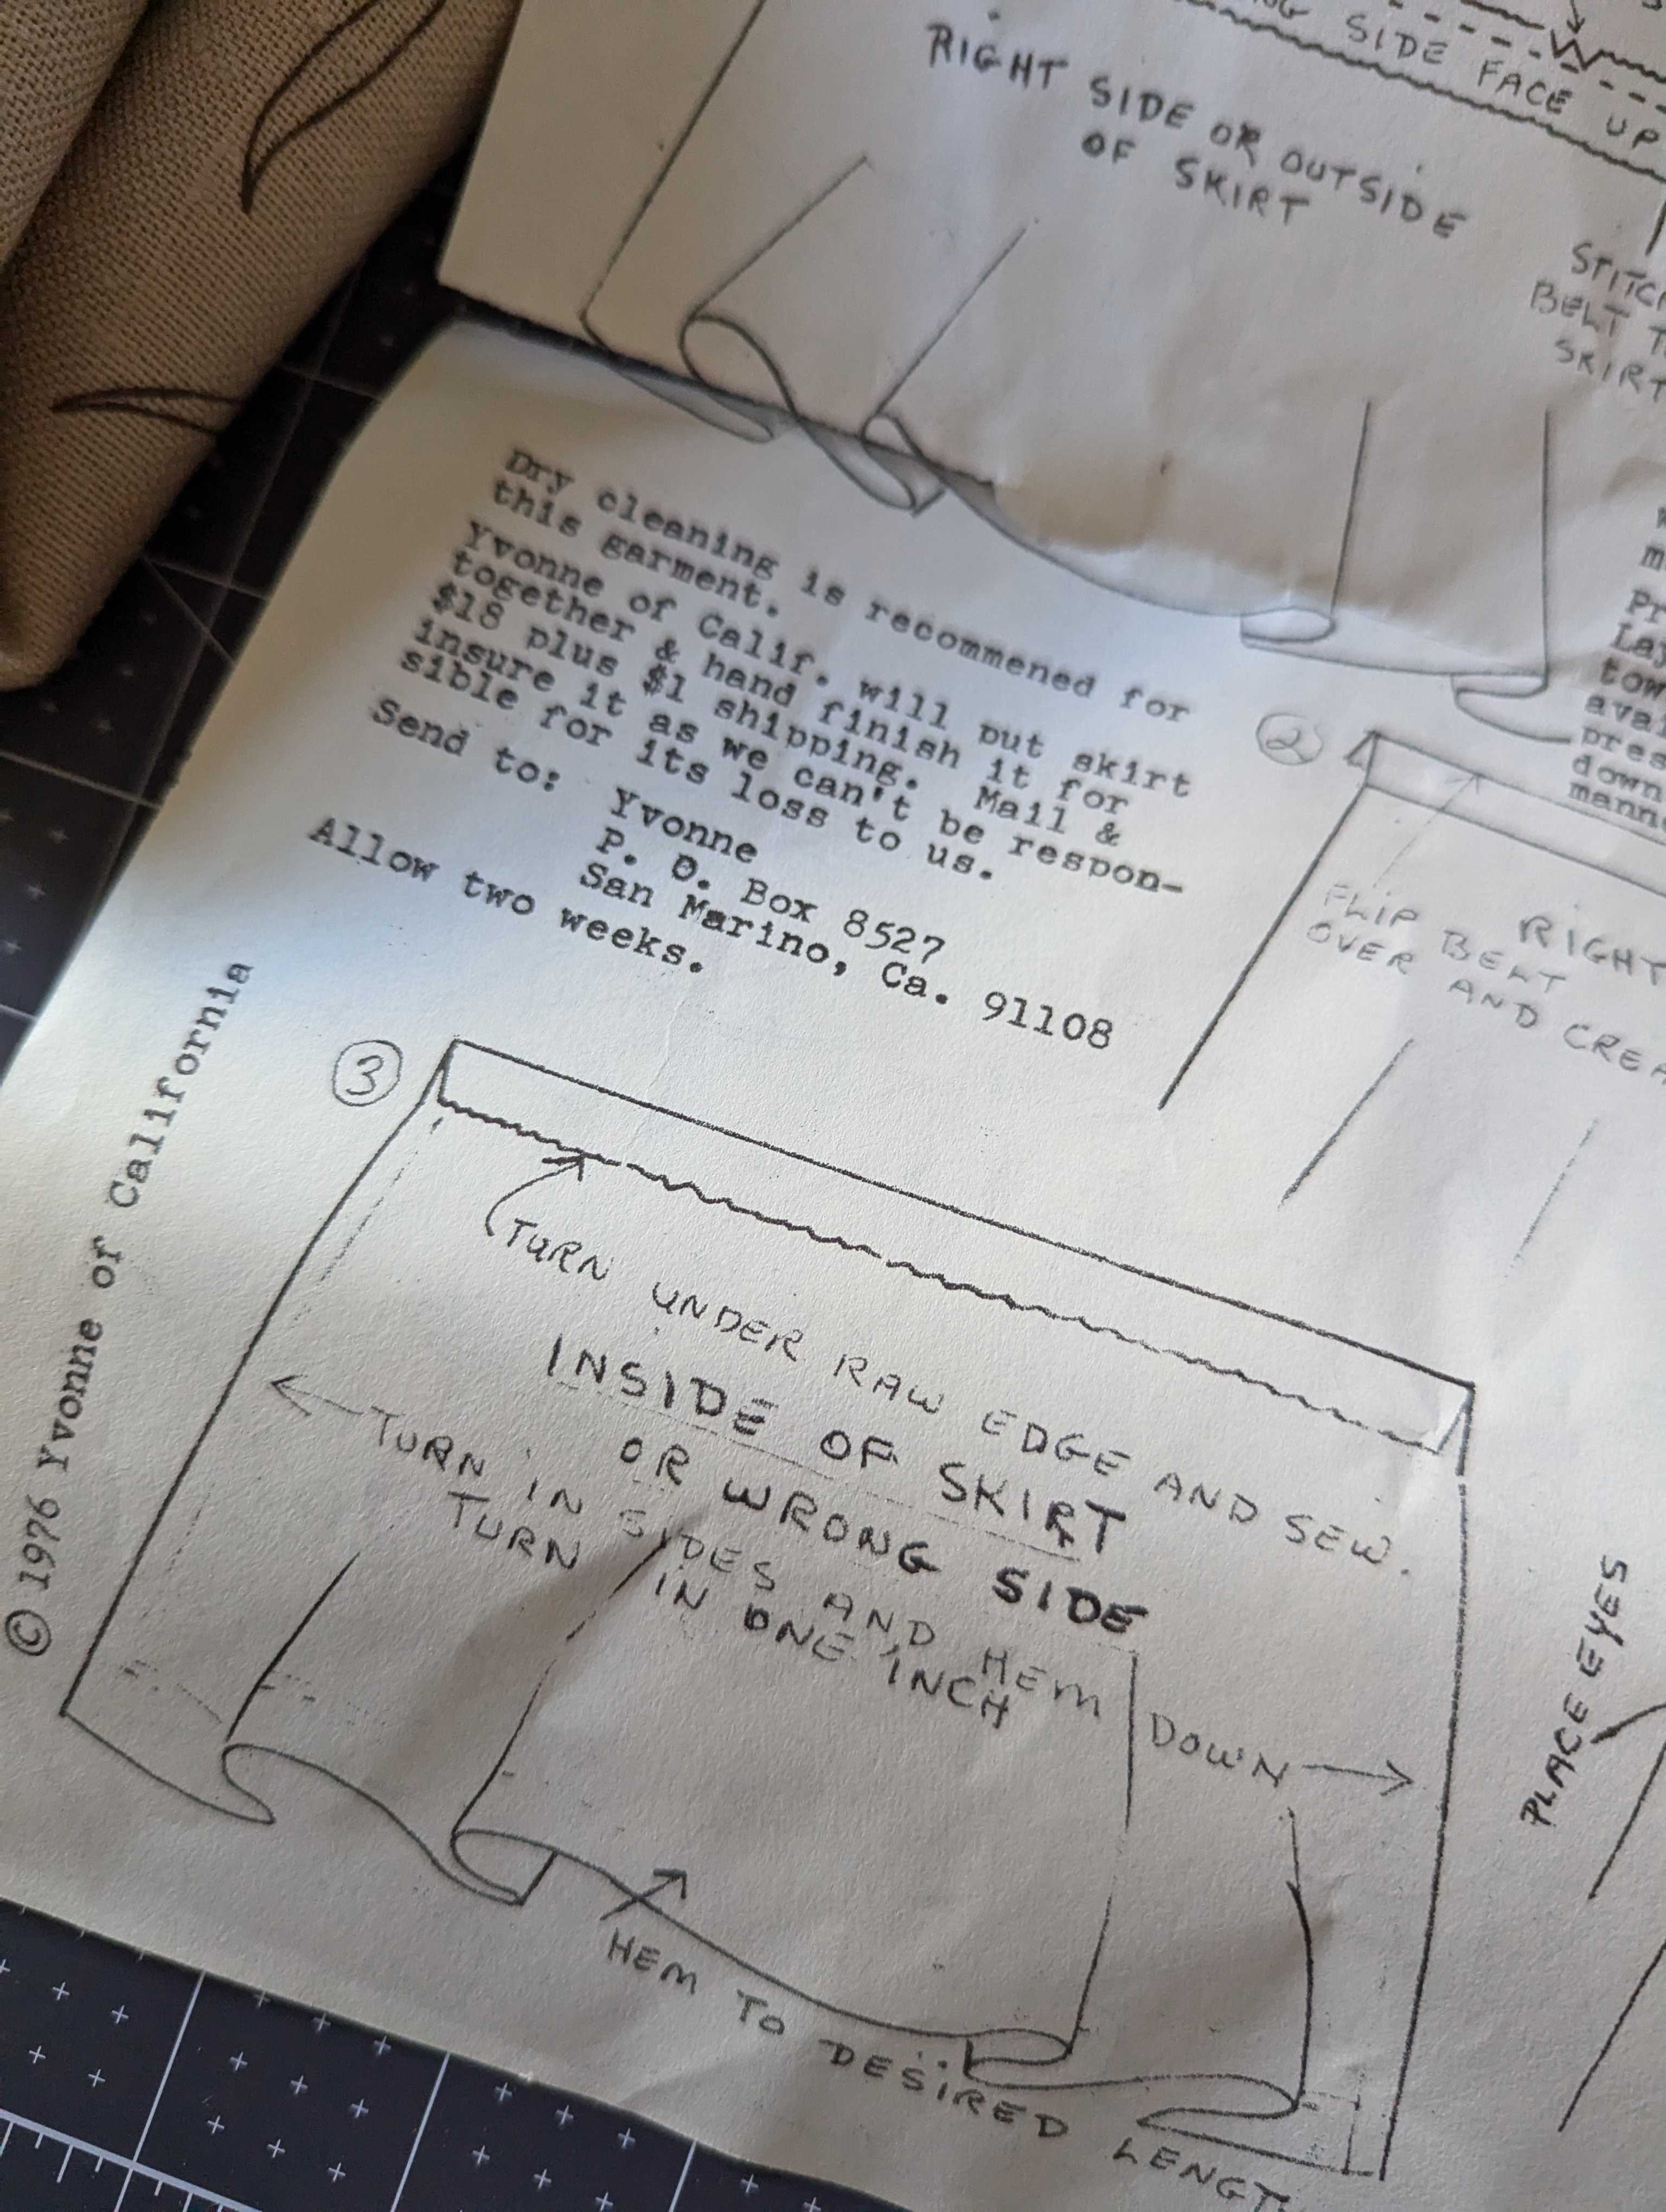 SIDE FACE UP
RIGHT SIDE OR OUTSIDE
OF SKIRT
BELT
SKIRT
Dry cleaning is recommened for
this garment.
Yvonne of Calif. will put skirt
together & hand finish it for
$18 plus $1 shipping. Mail &
insure it as we can't be respon-
sible for its loss to us.
Send to: Yvonne
P. O. Box 8527
San Marino, Ca. 91108
Allow two weeks.
2
FLIP BELT
OVER AND
RIGHT
© 1976 Yvonne of California
3
TURN UNDER RAW EDGE AND SEW.
INSIDE OF SKIRT
OR WRONG SIDE
TURN IN SIDES AND HEM DOWN
TURN IN ONE INCH
HEM TO DESIRED
PLACE EYES